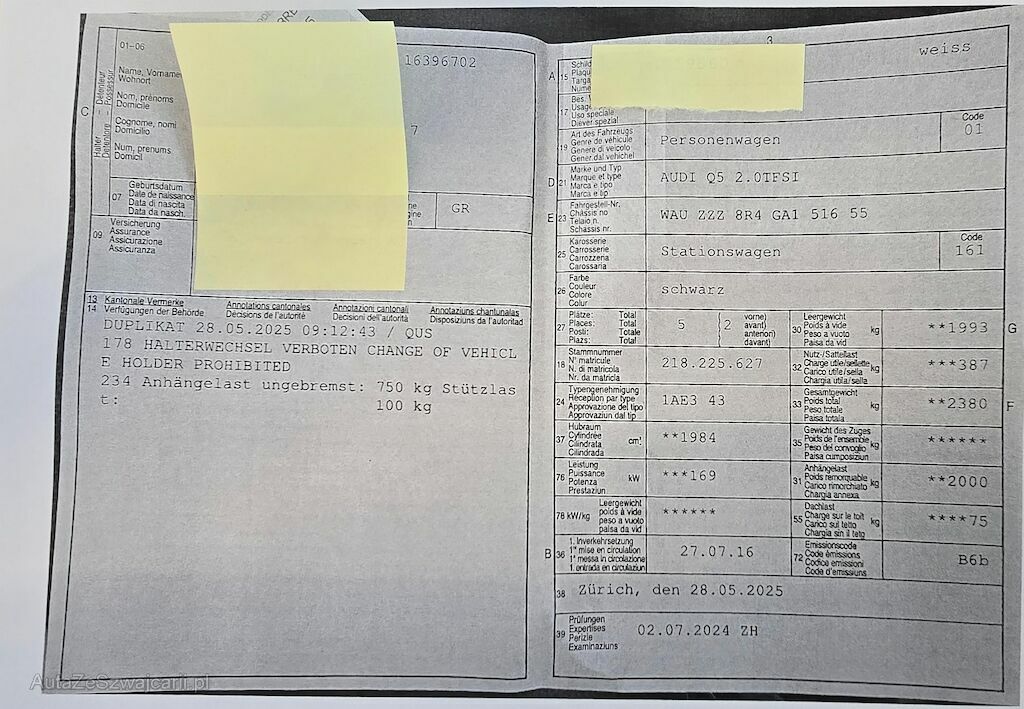 01-06
16396702
C
Halter – Détenteur
Detentore – Possessur
Name, Vorname
Wohnort
Nom, prénoms
Domicile
Cognome, nomi
Domicilio
Num, prenums
Domicil
7
07
Geburtsdatum
Date de naissance
Data di nascita
Data da nasch.
GR
09
Versicherung
Assurance
Assicurazione
Assicuranza
13 Kantonale Vermerke
14 Verfügungen der Behörde
Annotations cantonales
Décisions de l'autorité
Annotazioni cantonali
Decisioni dell'autorità
Annotaziuns chantunalas
Disposiziuns da l'autoritad
DUPLIKAT 28.05.2025 09:12:43 QUS
178 HALTERWECHSEL VERBOTEN CHANGE OF VEHICL
E HOLDER PROHIBITED
234 Anhängelast ungebremst: 750 kg Stützlas
t: 100 kg
3
A 15
Schild
weiss
17
Uso speciale
Diever spezial
19
Art des Fahrzeugs
Genre de véhicule
Genere di veicolo
Gener.dal vehichel
Personenwagen
Code
01
D 21
Marke und Typ
Marque et type
Marca e tipo
Marca e tip
AUDI Q5 2.0TFSI
E 23
Fahrgestell-Nr.
Châssis no
Telaio n.
Schassis nr.
WAU ZZZ 8R4 GA1 516 55
25
Karosserie
Carrosserie
Carrozzeria
Carossaria
Stationswagen
Code
161
26
Farbe
Couleur
Colore
Colur
schwarz
27
Plätze: Total
Places: Total
Posti: Totale
Plazs: Total
5
(2
vorne)
avant)
anteriori)
davant)
30
Leergewicht
Poids à vide
Peso a vuoto
Paisa da vid
kg
**1993
G
18
Stammnummer
N° matricule
N. di matricola
Nr. da matricla
218.225.627
32
Nutz-/Sattellast
Charge utile/sellette
Carico utile/sella
Chargia utila/sella
kg
***387
24
Typengenehmigung
Réception par type
Approvazione del tipo
Approvaziun dal tip
1AE3 43
33
Gesamtgewicht
Poids total
Peso totale
Paisa totala
kg
**2380
F
37
Hubraum
Cylindrée
Cilindrata
Cilindrada
cm³
**1984
35
Gewicht des Zuges
Poids de l'ensemble
Peso del convoglio
Paisa cumposiziun
kg
******
76
Leistung
Puissance
Potenza
Prestaziun
kW
***169
31
Anhängelast
Poids remorquable
Carico rimorchiato
Chargia annexa
kg
**2000
78 kW/kg
Leergewicht
poids à vide
peso a vuoto
paisa da vid
******
55
Dachlast
Charge sur le toit
Carico sul tetto
Chargia sin il tetg
kg
****75
B 36
1. Inverkehrsetzung
1re mise en circulation
1a messa in circolazione
1. entrada en circulaziun
27.07.16
72
Emissionscode
Code émissions
Codice emissioni
Code d'emissiuns
B6b
38
Zürich, den 28.05.2025
39
Prüfungen
Expertises
Perizie
Examinaziuns
02.07.2024 ZH
AutaZeSzwajcarii.pl